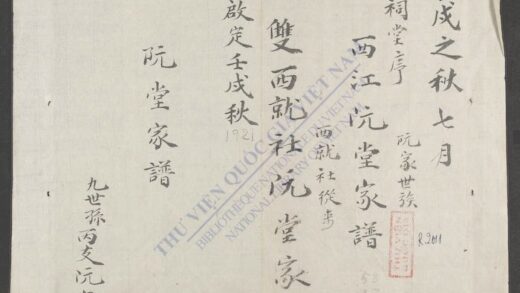 戌之秋七月
阮家世族
祠堂序
西江阮堂家譜
西就社從来
雙西就社阮堂家
啟定壬戌秋
1921
阮堂家譜
九世孫丙支阮
THƯ VIỆN QUỐC GIA VIỆT NAM
BIBLIOTHÈQUE NATIONALE DU VIETNAM
NATIONAL LIBRARY OF VIETNAM
R.2011